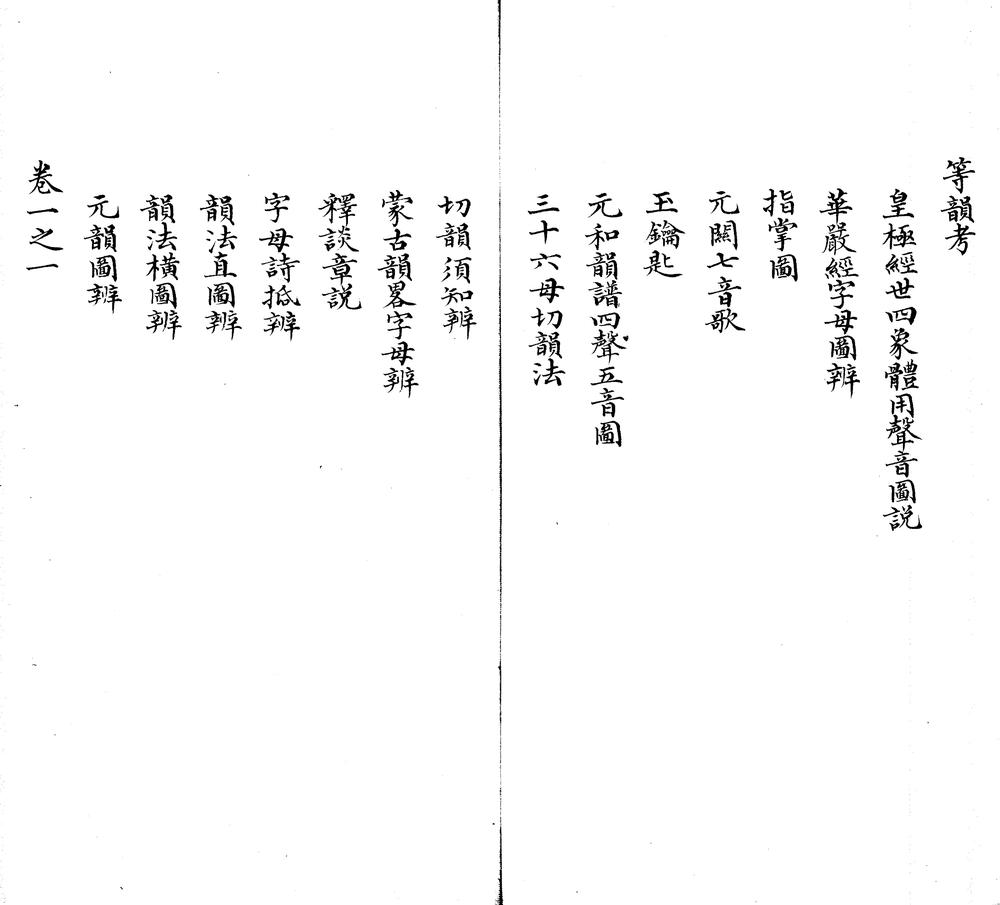 等韻考
皇極經世四象體用聲音圖説
華嚴經字母圖辨
指掌圖
元關七音歌
玉鑰匙
元和韻譜四聲五音圖
三十六母切韻法
切韻須知辨
蒙古韻畧字母辨
釋談章説
字母詩抵辨
韻法直圖辨
韻法横圖辨
元韻圖辨
卷一之一